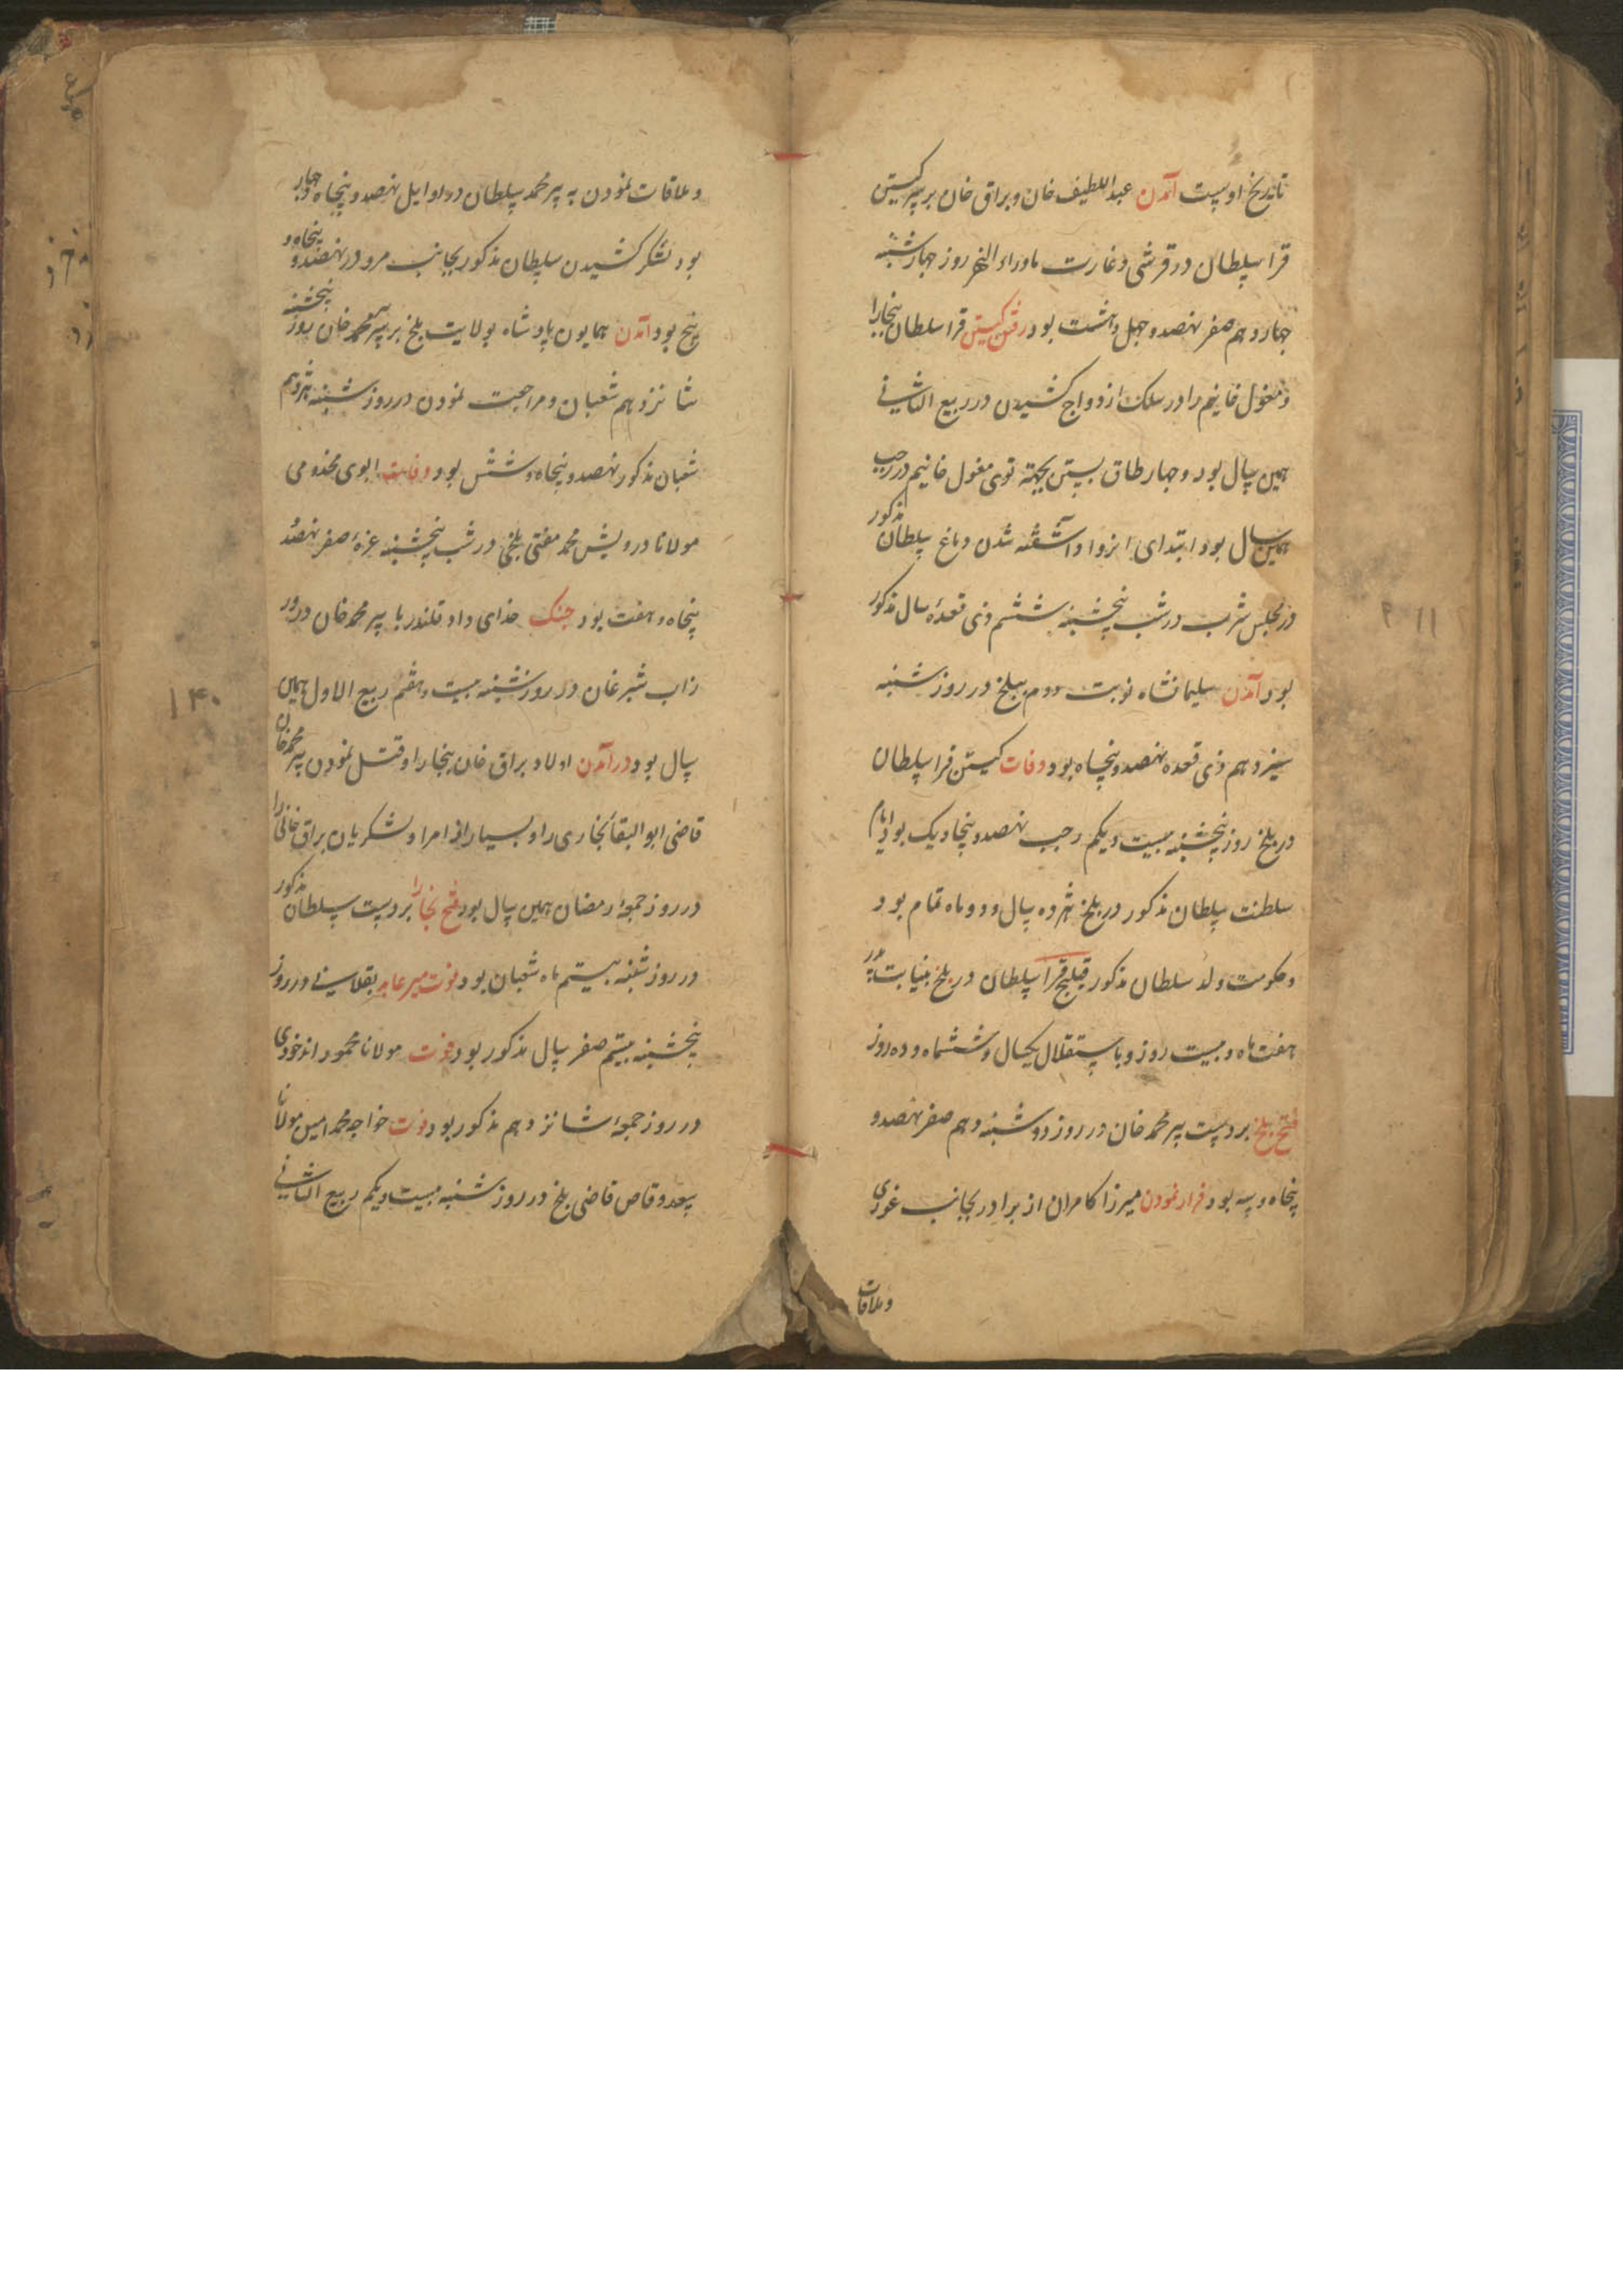 تاریخ اوست آمدن عبداللطیف خان و براق خان بر سر کیستن
قرا سلطان در قرشی و غارت ماوراء النهر روز چهارشنبه
چهاردهم صفر نهصد و چهل و هشت بود رفتن کیستن قرا سلطان ببخارا
و مغول خانیم را در سلک ازدواج کشیدن در ربیع الثانی
همین سال بود و چهار طاق بستن بجهة توی مغول خانیم در رجب
همین سال بود ابتدای انزوا و آشفته شدن دماغ سلطان مذکور
در مجلس شرب در شب پنجشنبه ششم ذی قعدهٔ سال مذکور
بود آمدن سلیمانشاه نوبت دوم ببلخ در روز شنبه
سیزدهم ذی قعده نهصد و پنجاه بود وفات کیستن قرا سلطان
در بلخ روز پنجشنبه بیست و یکم رجب نهصد و پنجاه و یک بود ایام
سلطنت سلطان مذکور در بلخ هژده سال و دو ماه تمام بود
و حکومت ولد سلطان مذکور قیلیج قرا سلطان در بلخ بنیابت پدر
هفت ماه و بیست روز و باستقلال یکسال و ششماه و ده روز
فتح بلخ بر دست پیر محمد خان در روز دوشنبه دهم صفر نهصد و
پنجاه و سه بود فرار نمودن میرزا کامران از برادر بجانب غوری
و ملاقات
و ملاقات نمودن به پیر محمد سلطان در اوایل نهصد و پنجاه و چهار
بود لشکر کشیدن سلطان مذکور بجانب مرو در نهصد و پنجاه و
پنج بود آمدن همایون پادشاه بولایت بلخ بر سر پیر محمد خان روز پنجشنبه
شانزدهم شعبان و مراجعت نمودن در روز شنبه هژدهم
شعبان مذکور نهصد و پنجاه و شش بود وفات ابوی مخدومی
مولانا درویش محمد مفتی بلخی در شب پنجشنبه غرهٔ صفر نهصد
پنجاه و هفت بود جنک خدای داد قلندر با پیر محمد خان در
زاب شبرغان در روز شنبه بیست و هفتم ربیع الاول همین
سال بود در آمدن اولاد براق خان ببخارا و قتل نمودن پیر محمد خان
قاضی ابوالبقا بخاری را و بسیار از امرا و لشکریان براق خانی را
در روز جمعهٔ رمضان همین سال بود فتح بخارا بر دست سلطان مذکور
در روز شنبه بیستم ماه شعبان بود فوت میر عابد بقلانی در روز
پنجشنبه بیستم صفر سال مذکور بود فوت مولانا محمود اندخودی
در روز جمعهٔ شانزدهم مذکور بود فوت خواجه محمد امین مولانا
سعد وقاص قاضی بلخ در روز شنبه بیست و یکم ربیع الثانی
۱۴۰